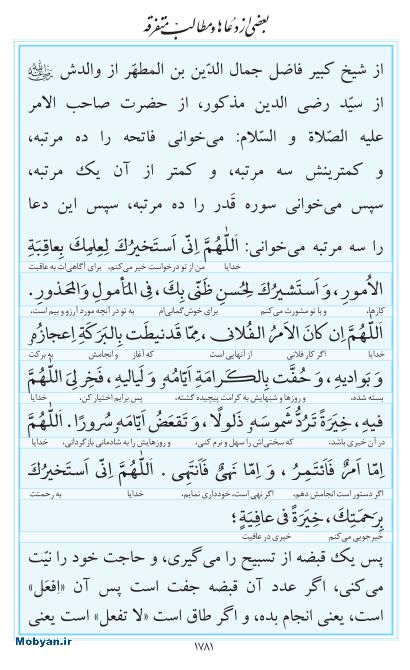 بعضی از دعاها و مطالب متفرقه
از شیخ کبیر فاضل جمال الدّین بن المطهّر از والدش
از سیّد رضی الدین مذکور، از حضرت صاحب الامر
علیه الصّلاة و السّلام: می‌خوانی فاتحه را ده مرتبه،
و کمترینش سه مرتبه، و کمتر از آن یک مرتبه،
سپس می‌خوانی سوره قَدر را ده مرتبه، سپس این دعا
را سه مرتبه می‌خوانی: اَللّٰهُمَّ اِنّى اَستَخيرُكَ لِعِلمِكَ بِعاقِبَةِ
خدایا من از تو درخواست خیر می‌کنم، برای آگاهی‌ات به عاقبت
الاُمورِ، وَ اَستَشيرُكَ لِحُسنِ ظَنّى بِكَ، فِى المَأمولِ وَ المَحذورِ.
کارها، و با تو مشورت می‌کنم برای خوش گمانی‌ام به تو در آنچه مورد آرزو و بیم است،
اَللّٰهُمَّ اِن كانَ الاَمرُ الفُلانى، مِمّا قَد نيطَت بِالبَرَكَةِ اَعجازُهُ
خدایا اگر کار فلانی از آنهایی است که آغاز و انجامش به برکت
وَ بَواديهِ، وَ حُفَّت بِالكَرامَةِ اَيّامُهُ وَ لَياليهِ، فَخِر لِىَ اللّٰهُمَّ
بسته شده، و روزها و شبهایش به کرامت پیچیده گشته، پس برایم اختیار کن، خدایا
فيهِ، خِيَرَةً تَرُدُّ شَموسَهُ ذَلولًا، وَ تَقعَضُ اَيّامَهُ سُرورًا. اَللّٰهُمَّ
در آن خیری باشد، که سختی‌اش را سهل و نرم کنی، و روزهایش را به شادمانی بازگردانی، خدایا
اِمّا اَمرٌ فَاَئتَمِرُ، وَ اِمّا نَهىٌ فَاَنتَهى. اَللّٰهُمَّ اِنّى اَستَخيرُكَ
اگر دستور است انجامش دهم، اگر نهی است، خودداری نمایم، خدایا به رحمتت
بِرَحمَتِكَ، خِيَرَةً فى عافِيَةٍ؛
خیرجویی می‌کنم خیری در عافیت
پس یک قبضه از تسبیح را می‌گیری، و حاجت خود را نیّت
می‌کنی، اگر عدد آن قبضه جفت است پس آن «اِفعَل»
است، یعنی انجام بده، و اگر طاق است «لا تفعل» است یعنی
۱۷۸۱
Mobyan.ir